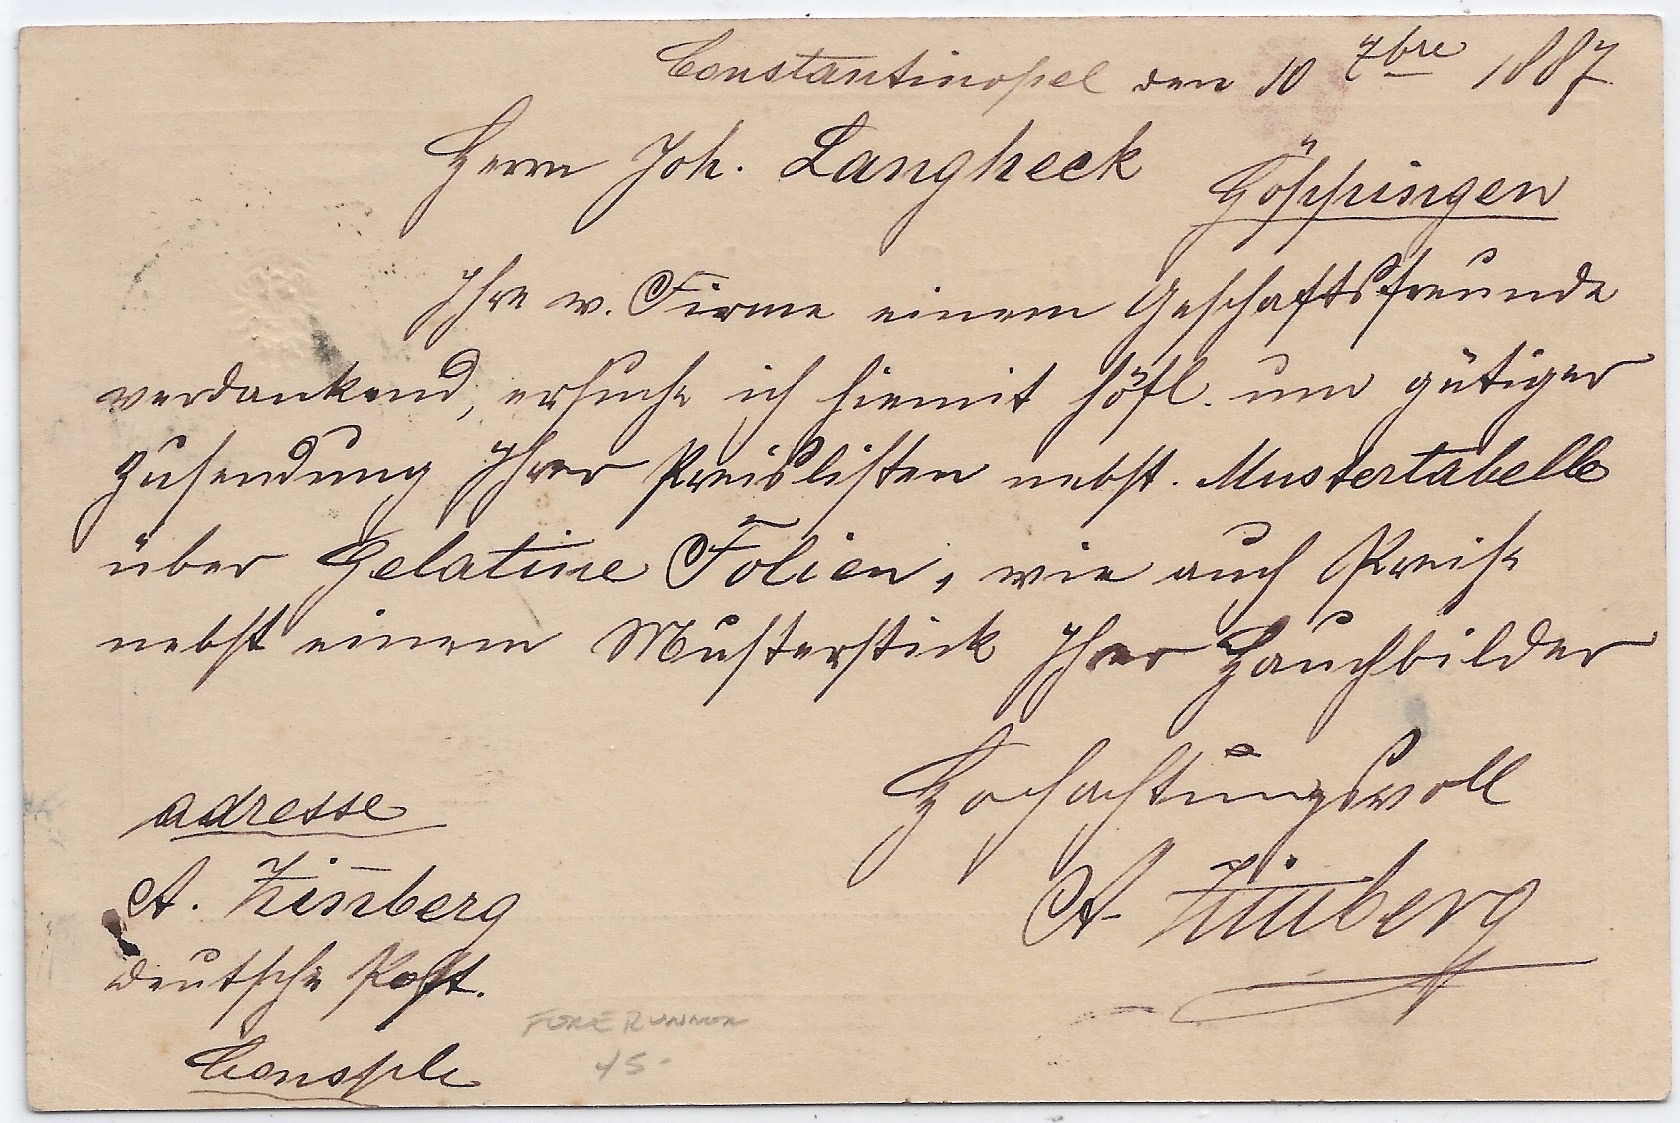 Constantinopel den 10 7bre 1887
Herrn Joh. Langheck
Göppingen
Ihre w. Firme einem Geschaftsfreunde
verdankend, ersuche ich hiemit höfl. um gütiger
Zusendung Ihrer Preislisten nebst. Mustertabelle
über Gelatine Folien, wie auch Preise
nebst einem Musterstick Ihrer Hauchbilder
Hochachtungsvoll
A. Zimberg
adresse
A. Zim̅berg
deutsche Post.
Consple
FORERUNNER
45-